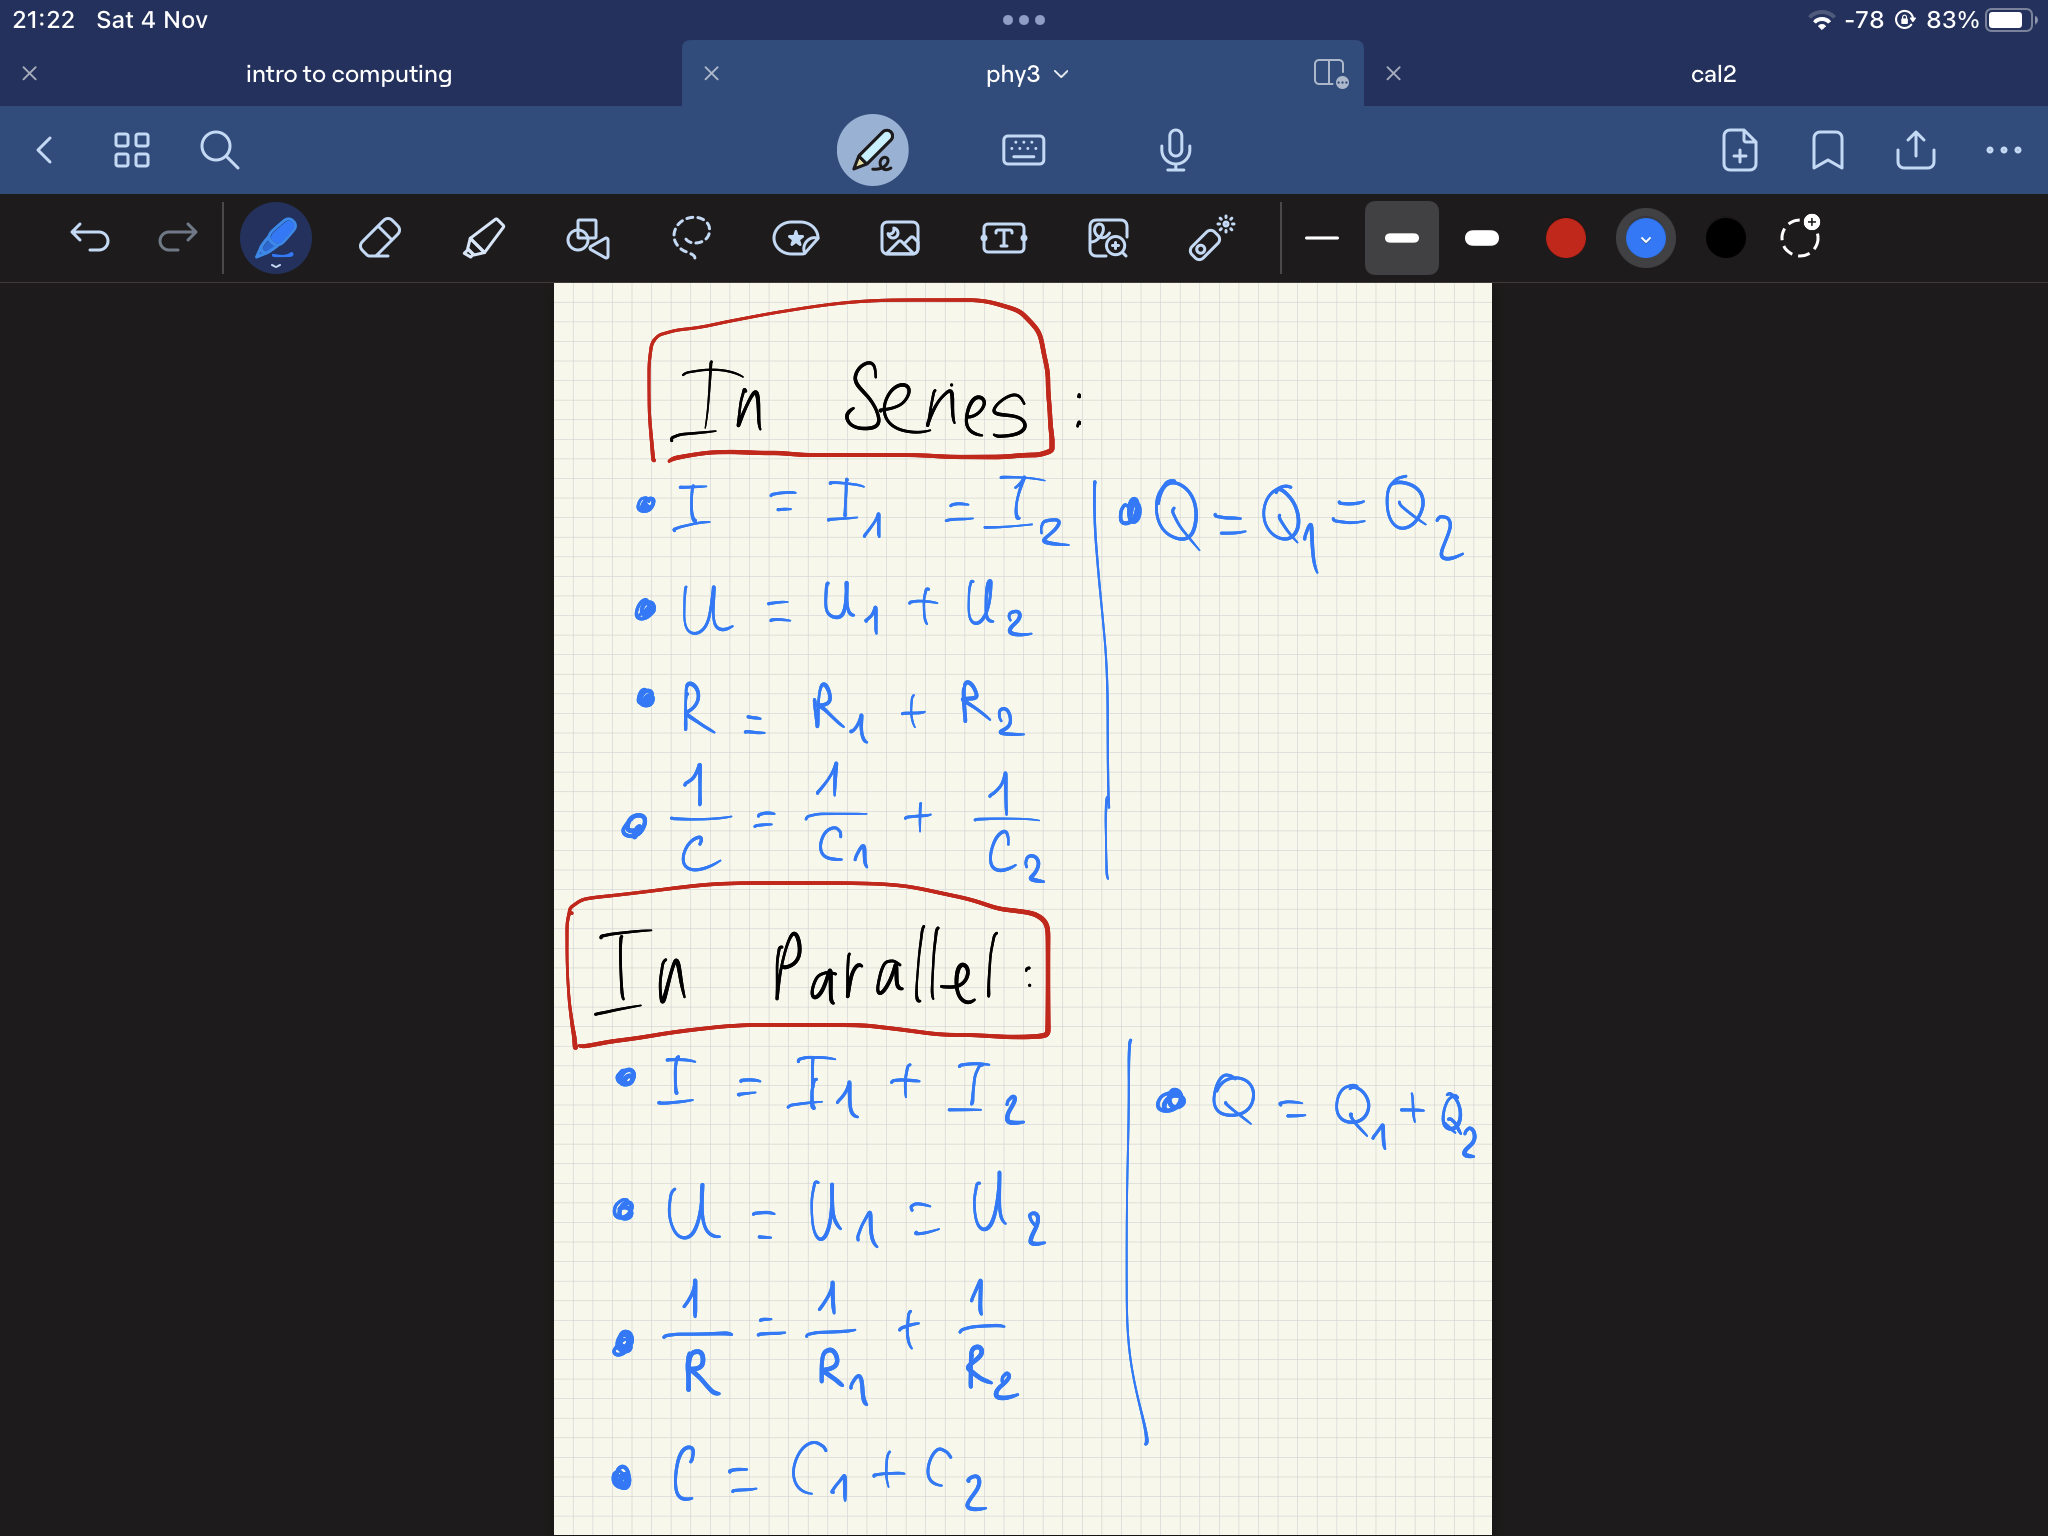 21:22 Sat 4 Nov -78 83%
intro to computing phy3 cal2
In Series :
• I = I₁ = I₂ • Q = Q₁ = Q₂
• U = U₁ + U₂
• R = R₁ + R₂
• 1/C = 1/C₁ + 1/C₂
In Parallel :
• I = I₁ + I₂ • Q = Q₁ + Q₂
• U = U₁ = U₂
• 1/R = 1/R₁ + 1/R₂
• C = C₁ + C₂